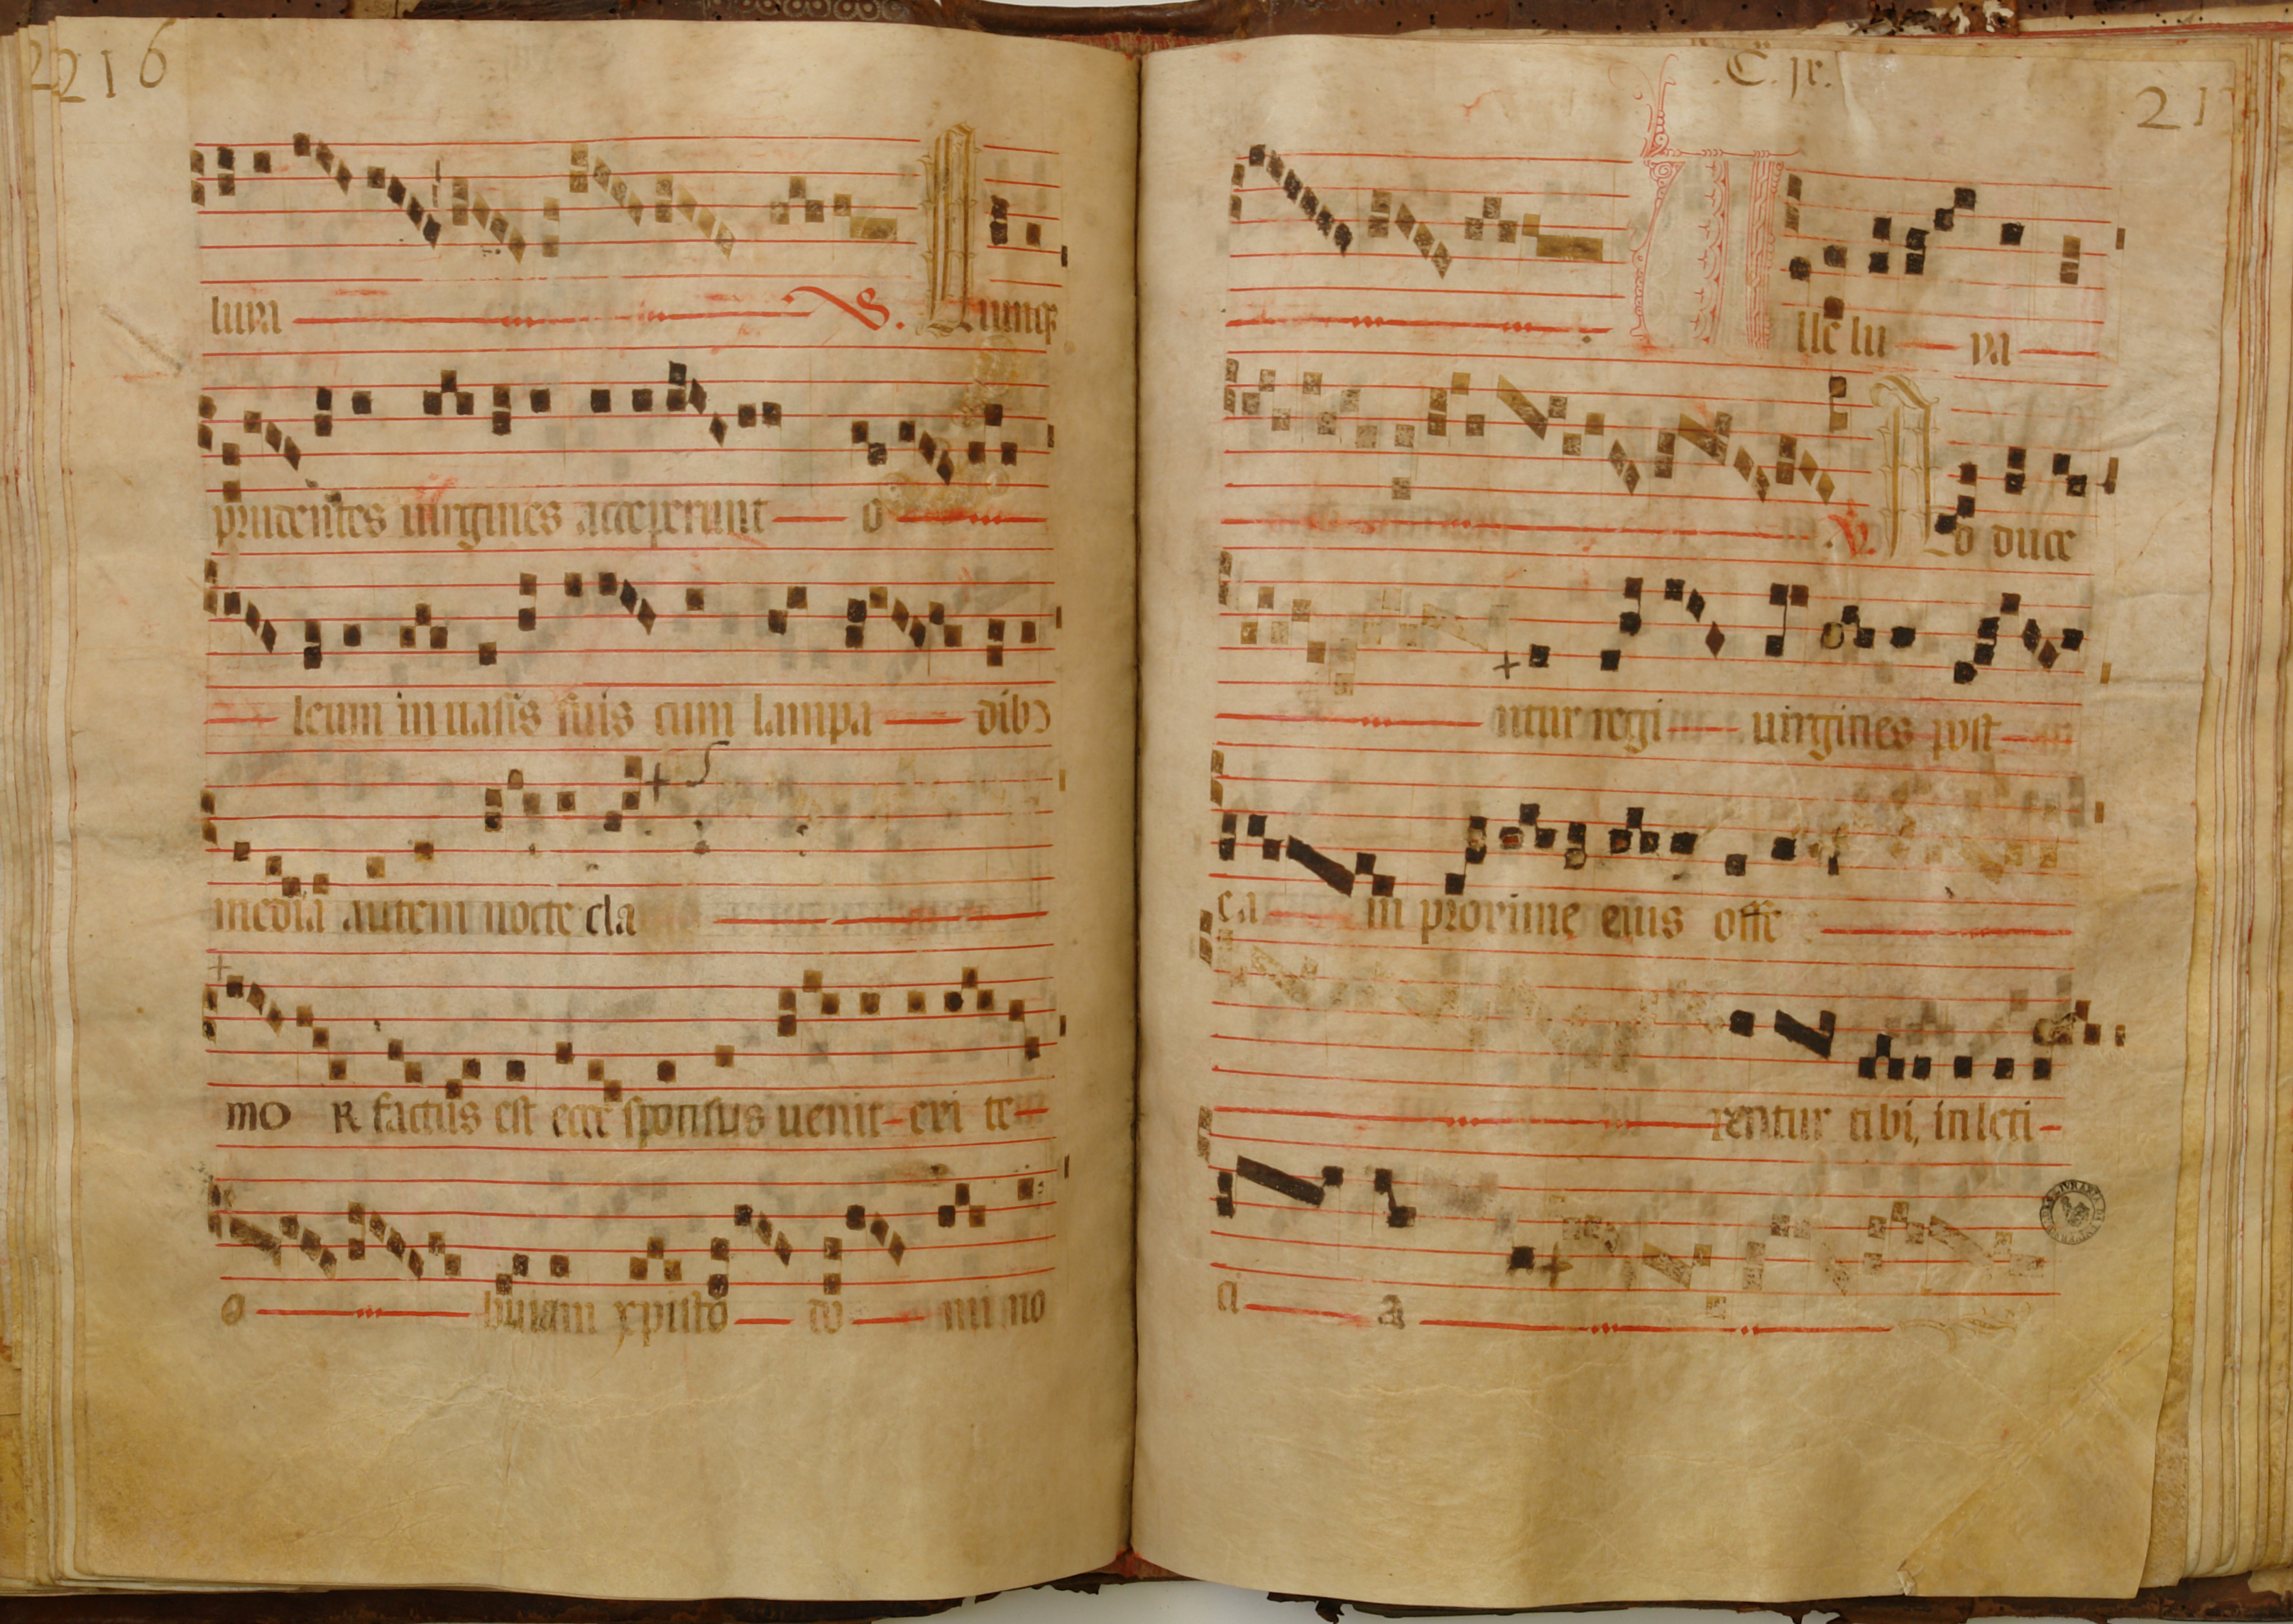 216
luya V. Quinq3
prudentes uirgines acceperunt o
leum in uasis suis cum lampa dib9
media autem nocte cla
mo R factus est ecce sponsus uenit exi te
o buiam xpisto do mi no
.C. jx.
21
lle lu ya
V. Ad duce
ntur regi uirgines post
ea m proxime eius offe
rentur tibi, in leti
ci a